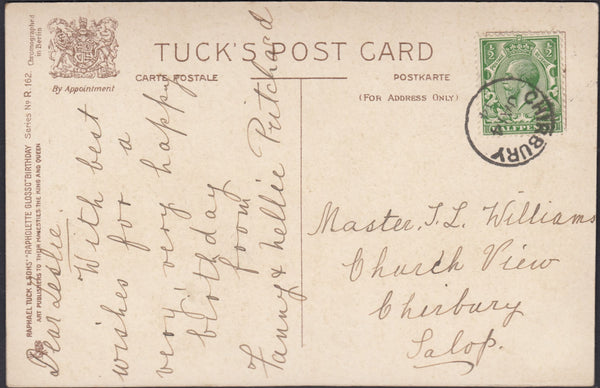 TUCK'S POST CARD
CARTE POSTALE
POSTKARTE
(FOR ADDRESS ONLY)
By Appointment
Chromographed
in Berlin
Series No R. 162.
RAPHAEL TUCK & SONS' "RAPHOLETTE GLOSSO" BIRTHDAY
ART PUBLISHERS TO THEIR MAJESTIES THE KING AND QUEEN
Dear Leslie.
With best
wishes for a
very very happy
birthday
from
Fanny & Nellie Pritchard
CHIRBURY
HALFPE
Master. J. L. Williams
Church View
Chirbury
Salop.